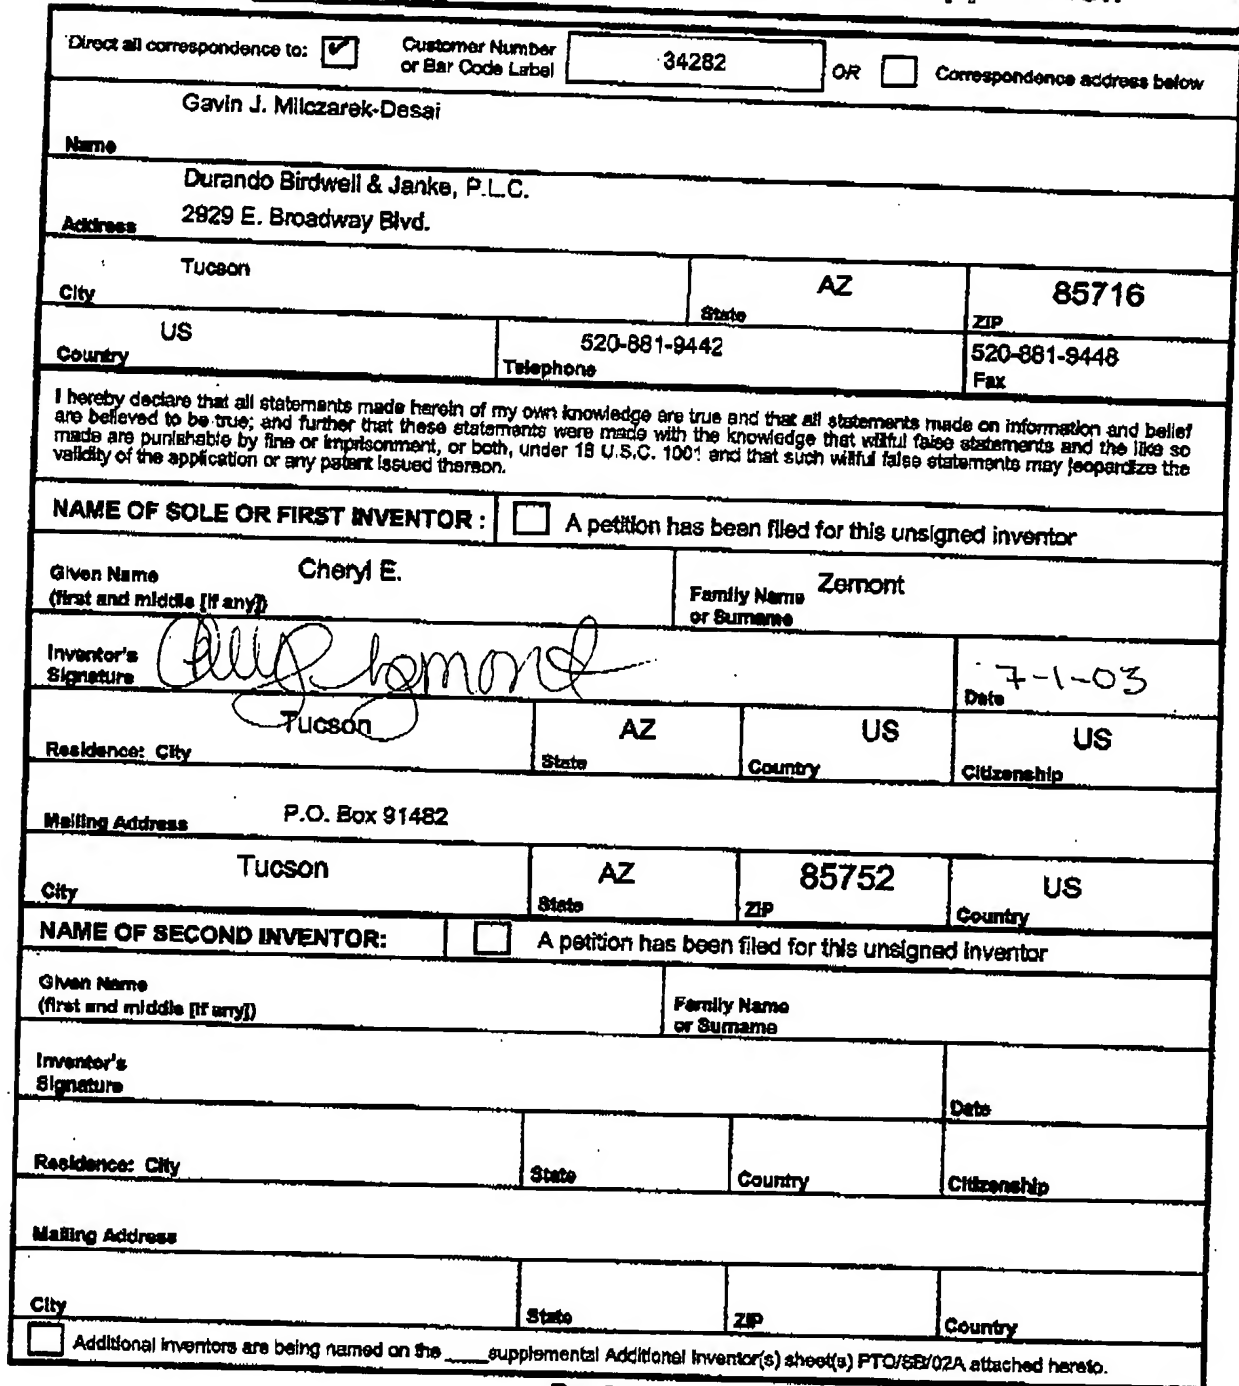 Direct all correspondence to: ✔ Customer Number or Bar Code Label 34282 OR Correspondence address below
Gavin J. Milczarek-Desai
Name
Durando Birdwell & Janke, P.L.C.
2929 E. Broadway Blvd.
Address
Tucson AZ 85716
City State ZIP
US 520-881-9442 520-881-9448
Country Telephone Fax
I hereby declare that all statements made herein of my own knowledge are true and that all statements made on information and belief
are believed to be true; and further that these statements were made with the knowledge that willful false statements and the like so
made are punishable by fine or imprisonment, or both, under 18 U.S.C. 1001 and that such willful false statements may jeopardize the
validity of the application or any patent issued thereon.
NAME OF SOLE OR FIRST INVENTOR : A petition has been filed for this unsigned inventor
Given Name Cheryl E. Family Name Zemont
(first and middle [if any]) or Surname
Inventor's
Signature Date 7-1-03
Tucson AZ US US
Residence: City State Country Citizenship
Mailing Address P.O. Box 91482
Tucson AZ 85752 US
City State ZIP Country
NAME OF SECOND INVENTOR: A petition has been filed for this unsigned inventor
Given Name Family Name
(first and middle [if any]) or Surname
Inventor's
Signature Date
Residence: City State Country Citizenship
Mailing Address
City State ZIP Country
Additional inventors are being named on the ____supplemental Additional Inventor(s) sheet(s) PTO/SB/02A attached hereto.